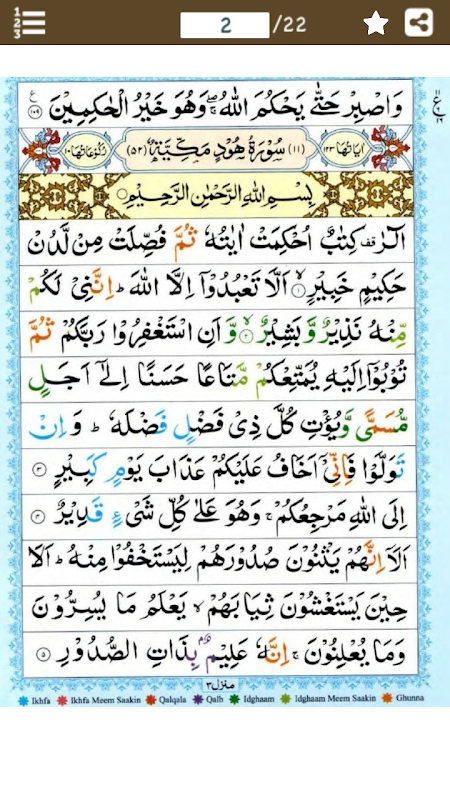 1
2
3
2
/22
وَاصْبِرْ حَتّٰى يَحْكُمَ اللّٰهُ ۖۚ وَهُوَ خَيْرُ الْحٰكِمِيْنَ ﴿۱۰۹﴾
اٰيَاتُهَا ۱۲۳ (۱۱) سُوْرَةُ هُوْدٍ مَكِّيَّةٌ (۵۲) رُكُوْعَاتُهَا ۱۰
بِسْمِ اللّٰهِ الرَّحْمٰنِ الرَّحِيْمِ
الٓرٰ ۚ كِتٰبٌ اُحْكِمَتْ اٰيٰتُهٗ ثُمَّ فُصِّلَتْ مِنْ لَّدُنْ
حَكِيْمٍ خَبِيْرٍ ۙ﴿۱﴾ اَلَّا تَعْبُدُوْٓا اِلَّا اللّٰهَ ؕ اِنَّنِيْ لَكُمْ
مِّنْهُ نَذِيْرٌ وَّبَشِيْرٌ ۙ﴿۲﴾ وَّاَنِ اسْتَغْفِرُوْا رَبَّكُمْ ثُمَّ
تُوْبُوْٓا اِلَيْهِ يُمَتِّعْكُمْ مَّتَاعًا حَسَنًا اِلٰٓى اَجَلٍ
مُّسَمًّى وَّيُؤْتِ كُلَّ ذِيْ فَضْلٍ فَضْلَهٗ ؕ وَاِنْ
تَوَلَّوْا فَاِنِّيْٓ اَخَافُ عَلَيْكُمْ عَذَابَ يَوْمٍ كَبِيْرٍ ﴿۳﴾
اِلَى اللّٰهِ مَرْجِعُكُمْ ۚ وَهُوَ عَلٰى كُلِّ شَيْءٍ قَدِيْرٌ ﴿۴﴾
اَلَآ اِنَّهُمْ يَثْنُوْنَ صُدُوْرَهُمْ لِيَسْتَخْفُوْا مِنْهُ ؕ اَلَا
حِيْنَ يَسْتَغْشُوْنَ ثِيَابَهُمْ ۙ يَعْلَمُ مَا يُسِرُّوْنَ
وَمَا يُعْلِنُوْنَ ۚ اِنَّهٗ عَلِيْمٌۢ بِذَاتِ الصُّدُوْرِ ﴿۵﴾
منزل ۳
Ikhfa Ikhfa Meem Saakin Qalqala Qalb Idghaam Idghaam Meem Saakin Ghunna